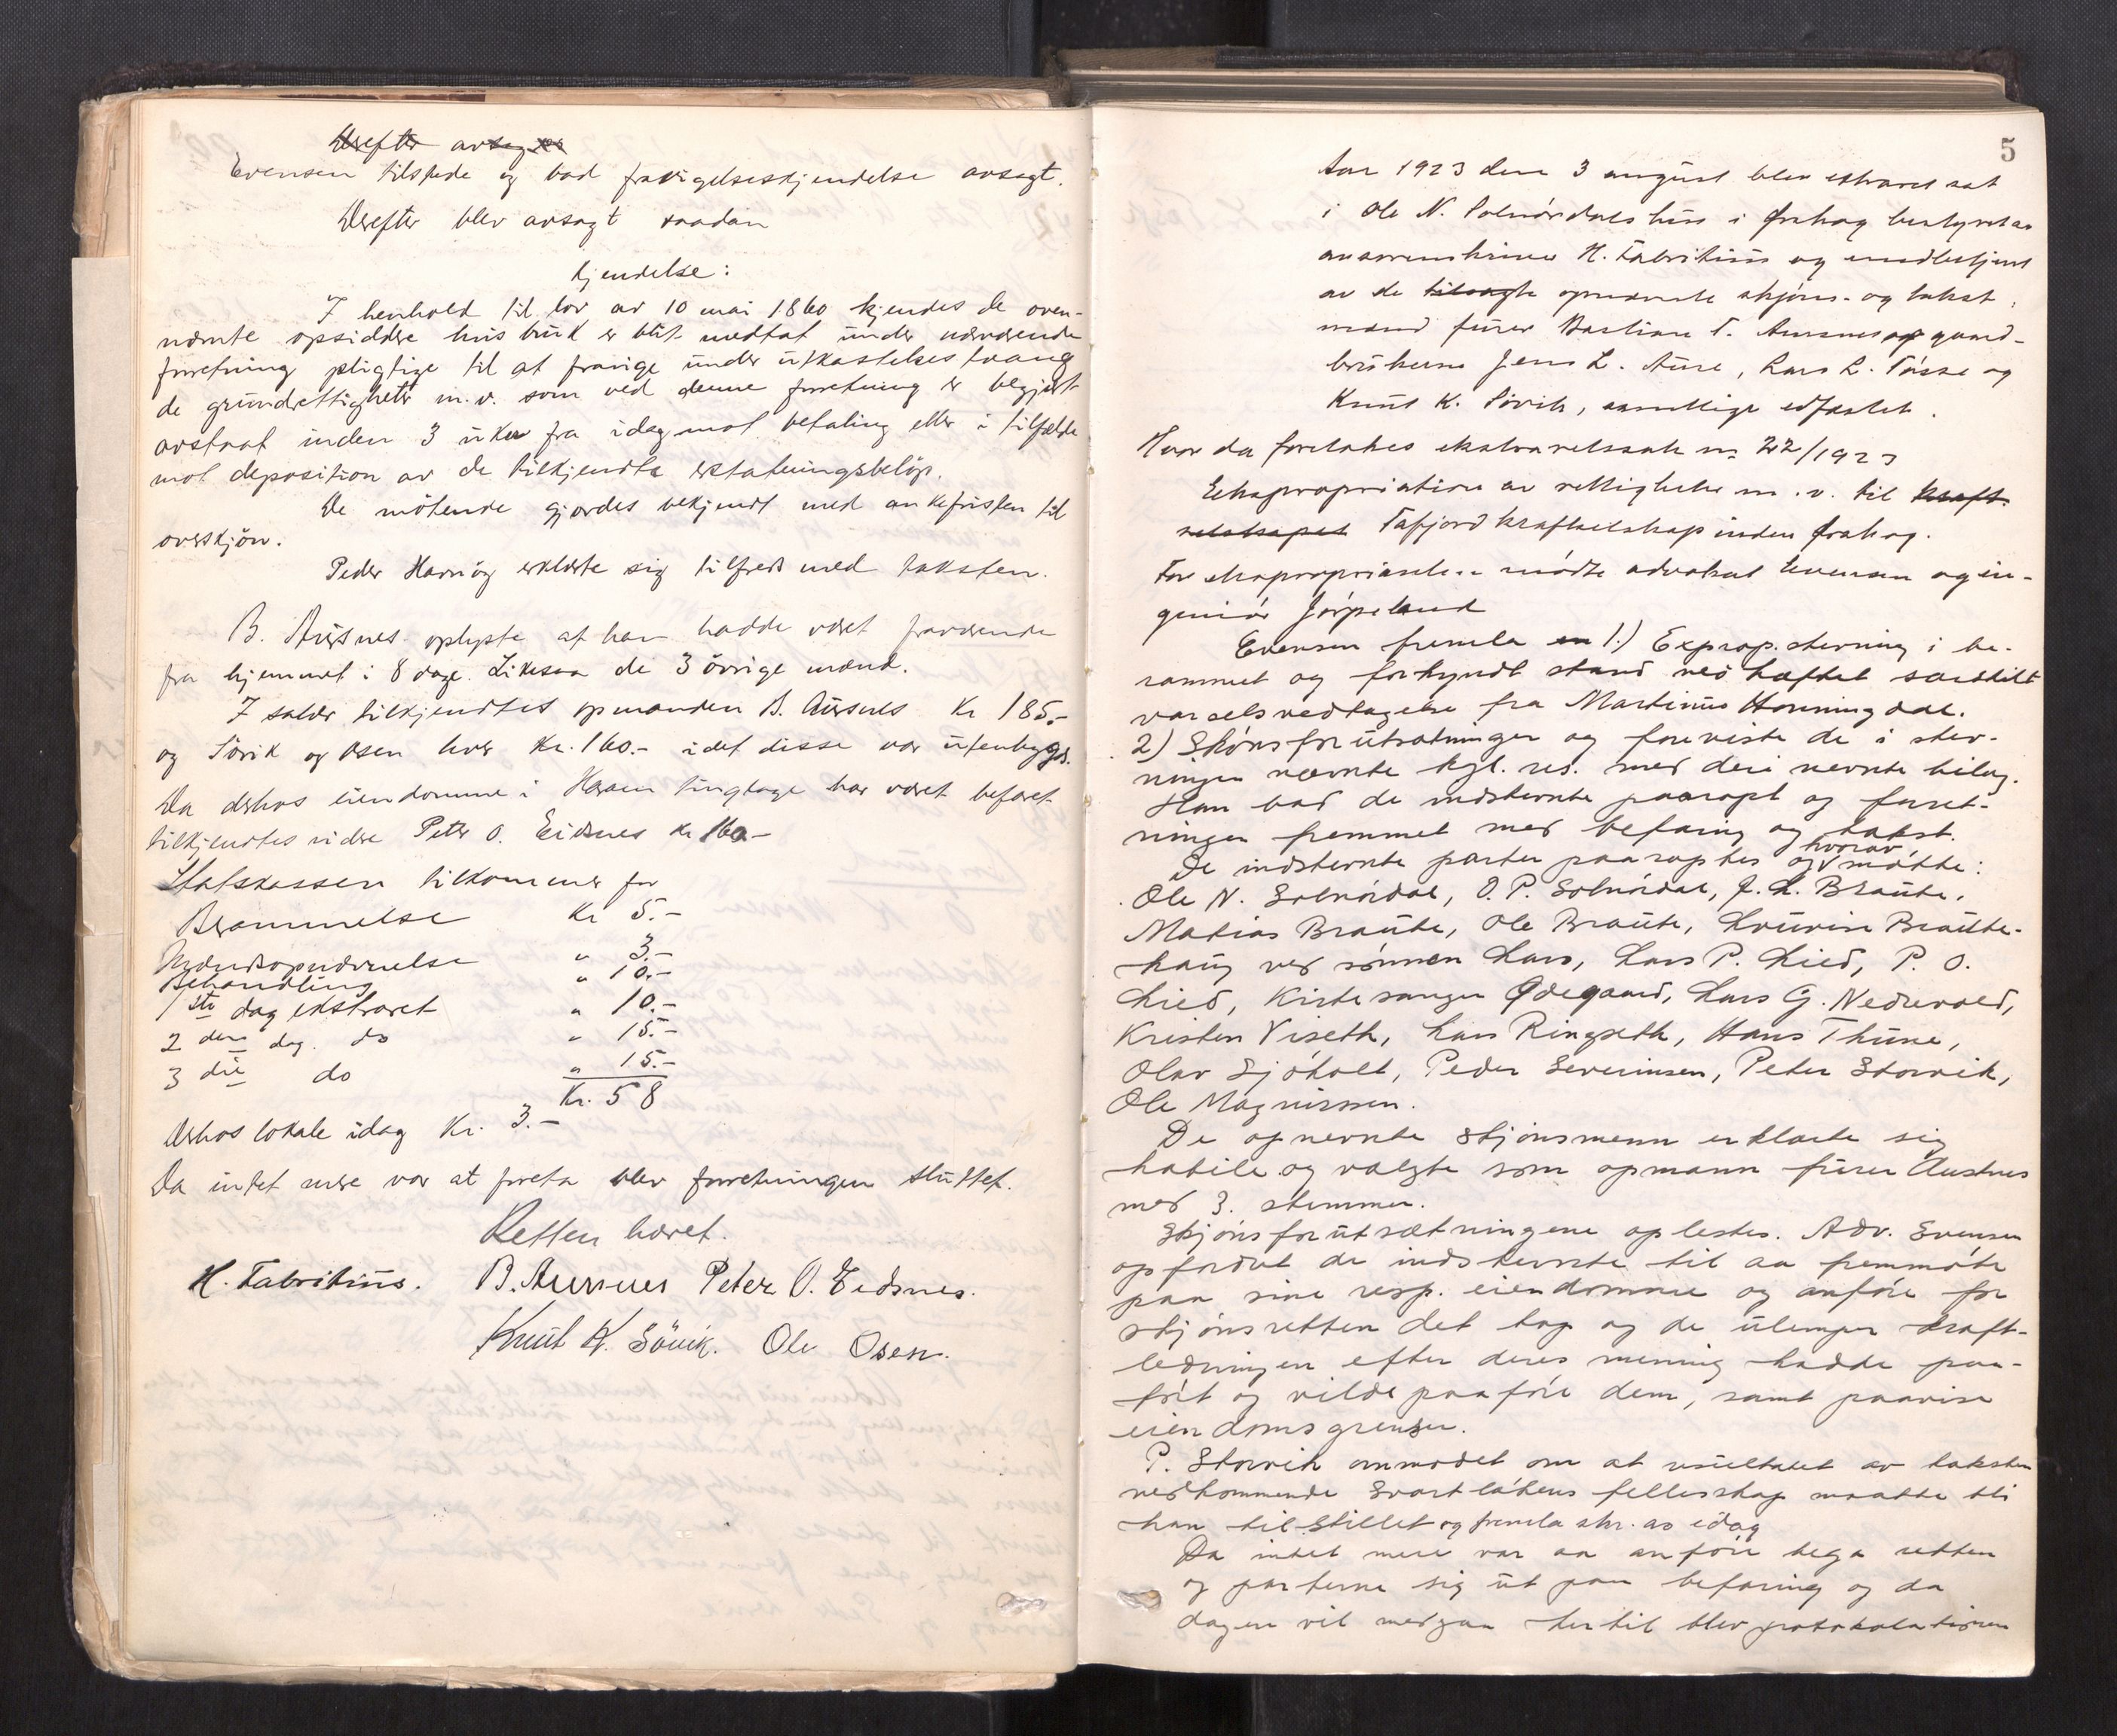 Derefter avsagdes
Evensen tilstede og bad fravigelseskjendelse avsagt.
Derefter blev avsagt saadan
kjendelse:
I henhold til lov av 10 mai 1860 kjendes de oven-
nævnte opsiddere hvis bruk er blit medtat under nærværende
forretning pligtige til at fravige under utkastelses tvang
de grundrettigheter m.v. som ved denne forretning er begjært
avstaat inden 3 uker fra idag mot betaling eller i tilfælde
mot deposition av de tilkjendte erstatningsbeløp.
De møtende gjordes bekjendt med ankefristen til
overskjøn.
Peder Havnøy erklærte sig tilfreds med taksten.
B. Aursnes oplyste at han hadde været fraværende
fra hjemmet i 8 dage. Likesaa de 3 øvrige mænd.
I salær tilkjendtes opmanden B. Aursnes Kr 185.-
og Søvik og Osen hver Kr. 160.- idet disse var utenbygds.
Da derhos eiendomme i Haram tinglage har været befaret
tilkjendtes videre Peter O. Eidsnes Kr 160-
Statskassen tilkommer for
Berammelse Kr 5.-
Mændsopnævnelse " 3.-
Behandling " 10.-
1 ste dag ekstraret " 10.-
2 den dag do " 15.-
3 die do " 15.-
Kr. 58
Derhos lokale idag Kr. 3.-
Da intet mere var at foreta blev forretningen sluttet.
Retten hævet.
H. Fabritius. B. Aursnes Peter O. Eidsnes.
Knut K. Søvik. Ole Osen.
5
Aar 1923 den 3 august blev ekstraret sat
i Ole N. Solnørdals hus i Ørskog bestyret av
sorenskriver H. Fabritius og medbetjent
av de tilsagte opnævnte skjøns- og takst
mænd furer Bastian T. Aursnes og gaard-
brukerne Jens L. Aure, Lars L. Tøsse og
Knut K. Søvik, samtlige edfæstet.
Hvor da foretokes ekstraretssak nr 22/1923
Ekspropriation av rettigheter m.v. til kraft-
selskapet Tafjord kraftselskap inden Ørskog.
For ekspropriantene møtte advokat Evensen og in-
geniør Jørpeland
Evensen fremla en 1.) Exprop. stevning i be-
rammet og forkyndt stand ved hæftet særskilt
varselsvedtagelse fra Martinus Honningdal.
2) Skønsforutsætninger og foreviste de i stev-
ningen nævnte kgl. res. med deri nevnte bilag.
Han bad de indstevnte paaropt og forret-
ningen fremmet med befaring og takst.
De indstevnte parter paaroptes og hvorav møtte:
Ole N. Solnórdal, O. P. Solnórdal, J. L. Braute,
Matias Braute, Ole Braute, Lovise Braute-
haug ved sønnen Lars, Lars P. Lied, P. O.
Lied, Kirkesanger Ødegaard, Lars G. Nedrevold,
Kristen Viseth, Lars Ringseth, Hans Thune,
Olav Sjóholt, Peder Severinsen, Peter Storvik,
Ole Magnussen.
De opnevnte skjónsmenn erklærte sig
habile og valgte som opmann furer Aursnes
med 3. stemmer.
Skjónsforutsætningene oplestes. Adv. Evensen
opfordret de indstevnte til aa fremmóte
paa sine resp. eiendomme og anfóre for
skjónsretten det tap og de ulemper kraft-
ledningen efter deres mening hadde paa-
fórt og vilde paafóre dem, samt paavise
eiendomsgrenser.
P. Storvik anmodet om at resultatet av taksten
vedkommende Svartlókens fellesskap maatte bli
ham tilstillet og fremla skr. av idag
Da intet mere var aa anfóre bega retten
og parterne sig ut paa befaring og da
dagen vil medgaa hertil blev protokolationen